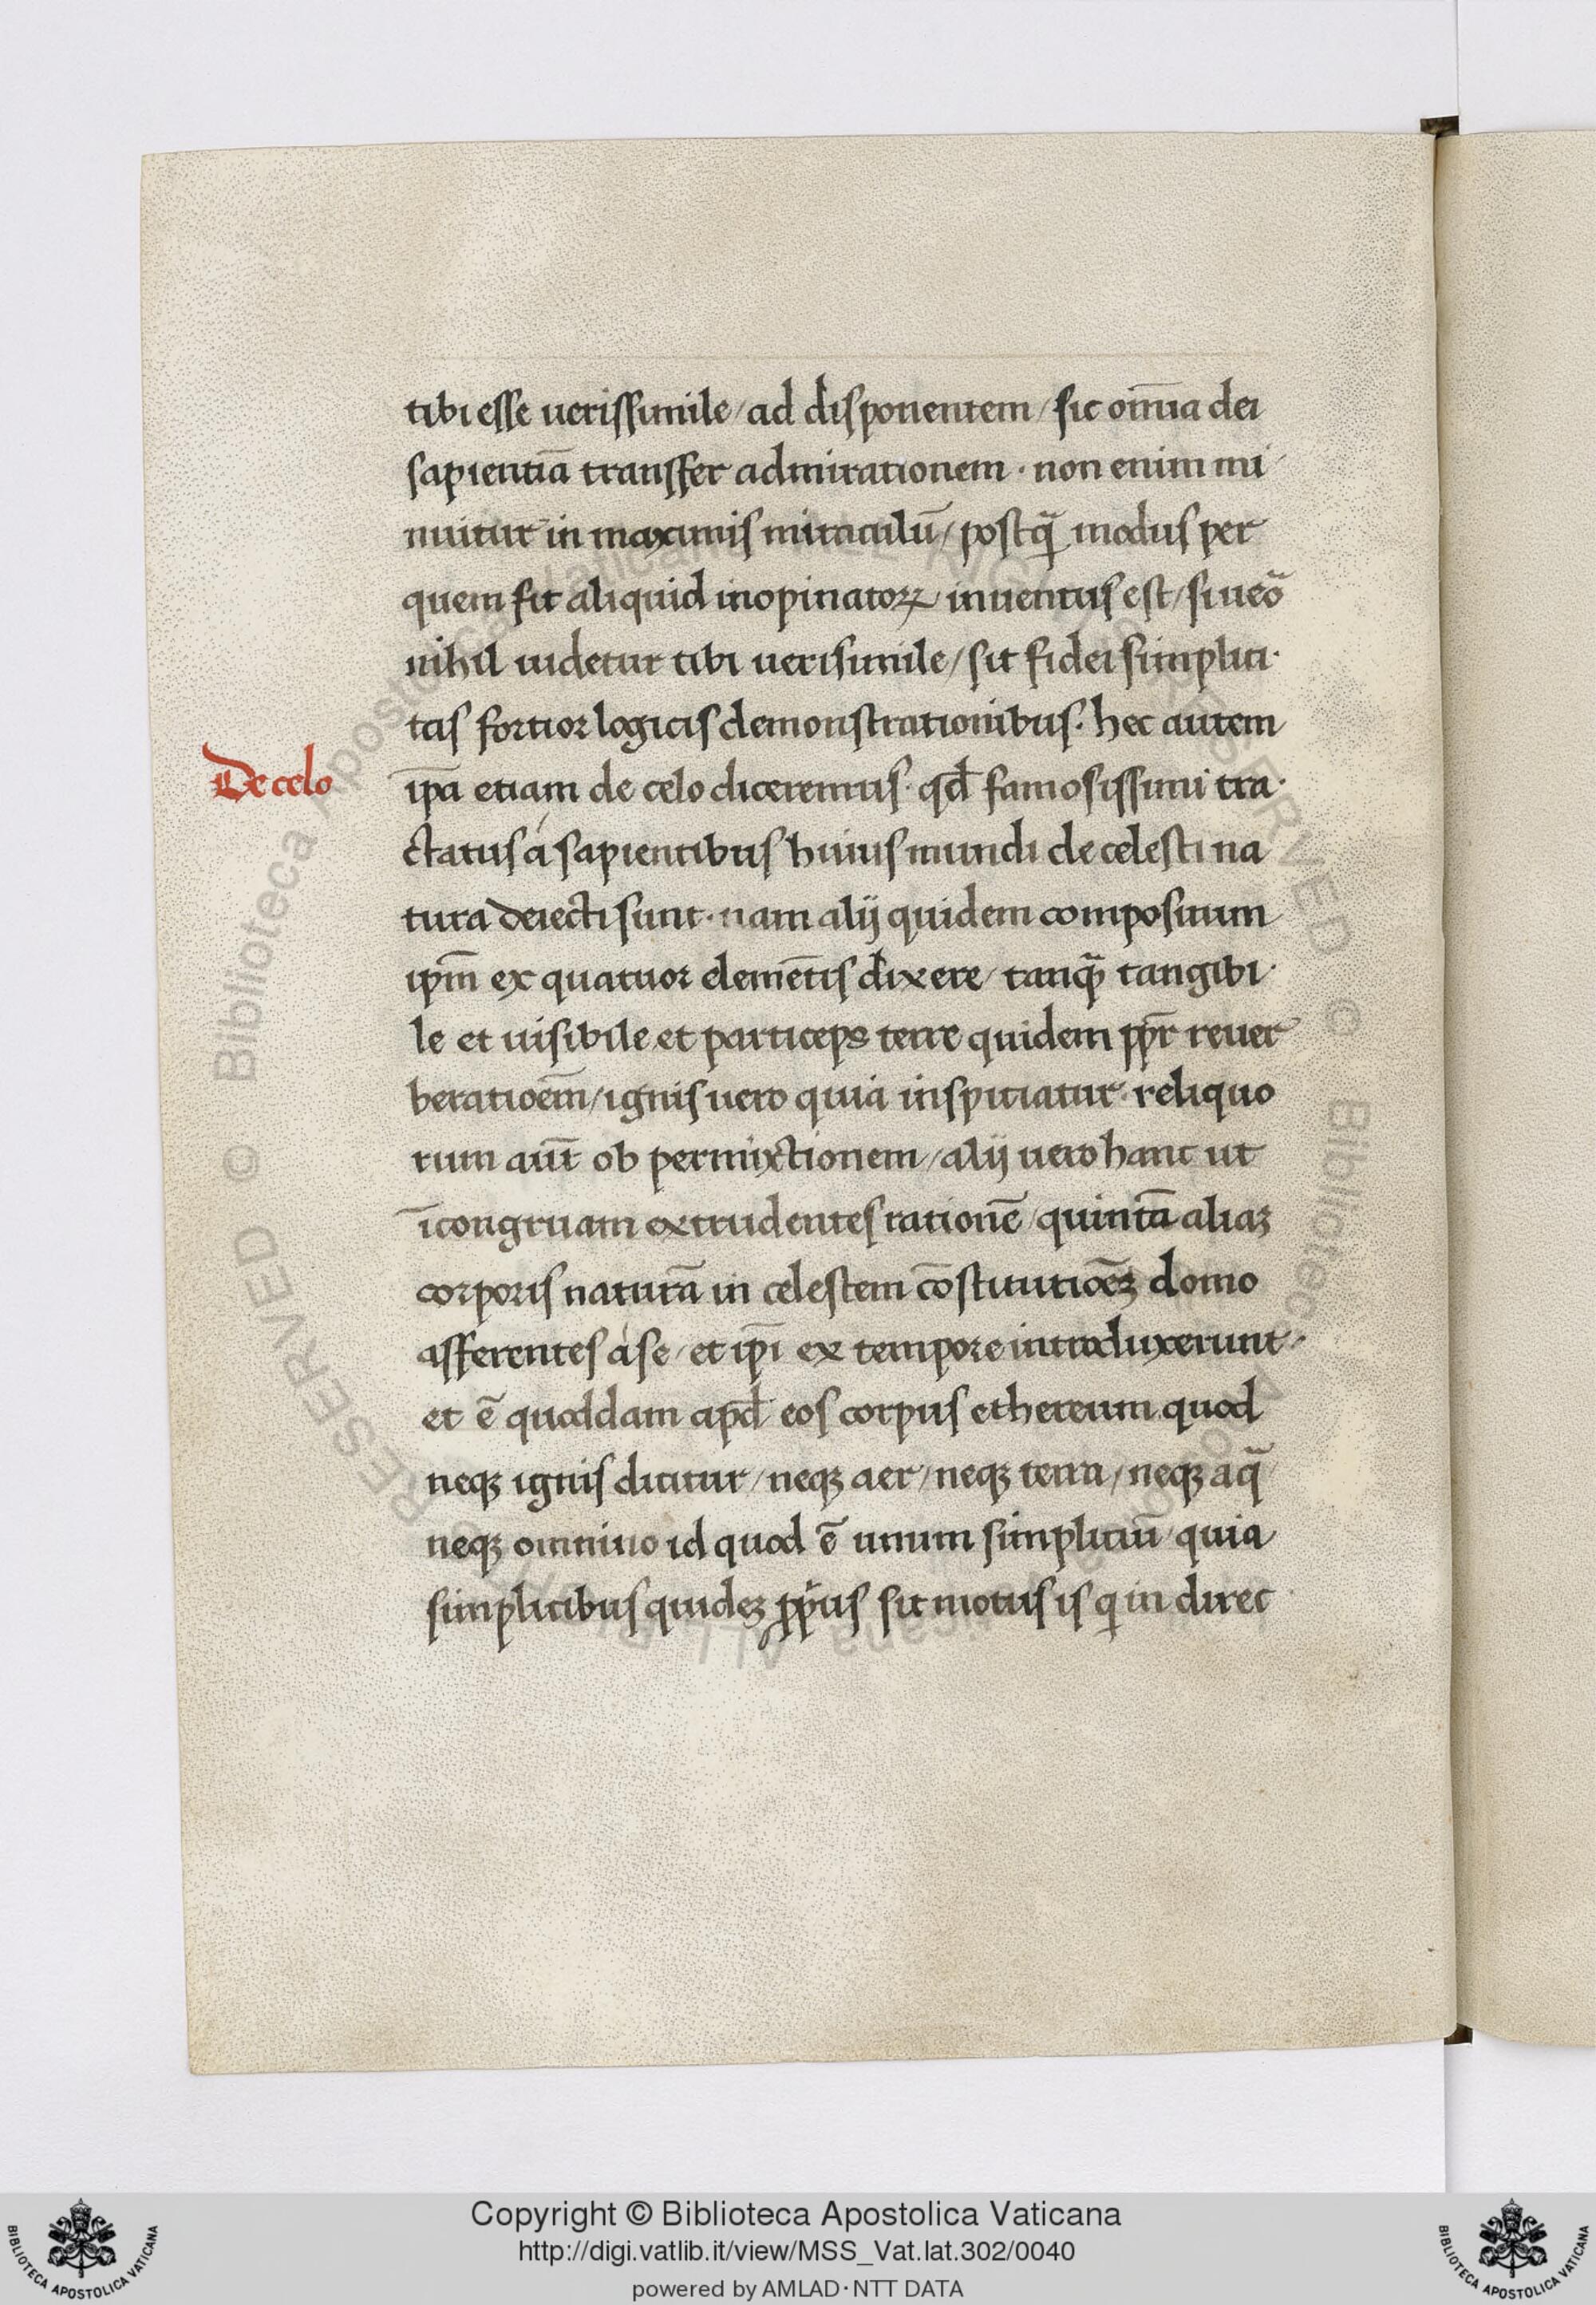 tibi esse uerissimile / ad disponentem / sic om̅ia dei
sapientiā transfer admirationem · non enim mi
nuitur in maximis miraculū / postq̄ modus per
quem fit aliquid inopinatoꝝ / inuentus est / si ueo̅
nihil uidetur tibi uerisimile / sit fidei simplici·
tas fortior logicis demonstrationibus. hec autem
De celo
ip̅a etiam de celo diceremus · qd̅ famosissimi tra·
ctatus á sapientibus huius mundi de celesti na
tura deiecti sunt · nam alij quidem compositum
ipm̅ ex quatuor elemētis dixere / tanq̄ tangibi·
le et uisibile et particeps terre quidem ppr̅ reuer
beratioem̅ / ignis uero quia inspiciatur · reliquo
rum aut̅ ob permixtionem / alij uero hanc ut
īcongruam extrudentes rationē / quintā aliaꝫ
corporis naturā in celestem cōstitutioēꝫ domo
afferentes à se / et ip̅i ex tempore introduxerunt ·
et ē quoddam apd̅ eos corpus ethereum quod
neqꝫ ignis dicitur / neqꝫ aer / neqꝫ terra / neqꝫ aq̄
neqꝫ omnino id quod ē unum simpliciū / quia
simplicibus quideꝫ ꝓpius sit motus is q in direc
© Biblioteca Apostolica Vaticana ALL RIGHTS RESERVED
Copyright © Biblioteca Apostolica Vaticana
http://digi.vatlib.it/view/MSS_Vat.lat.302/0040
powered by AMLAD·NTT DATA
BIBLIOTECA APOSTOLICA VATICANA
BIBLIOTECA APOSTOLICA VATICANA